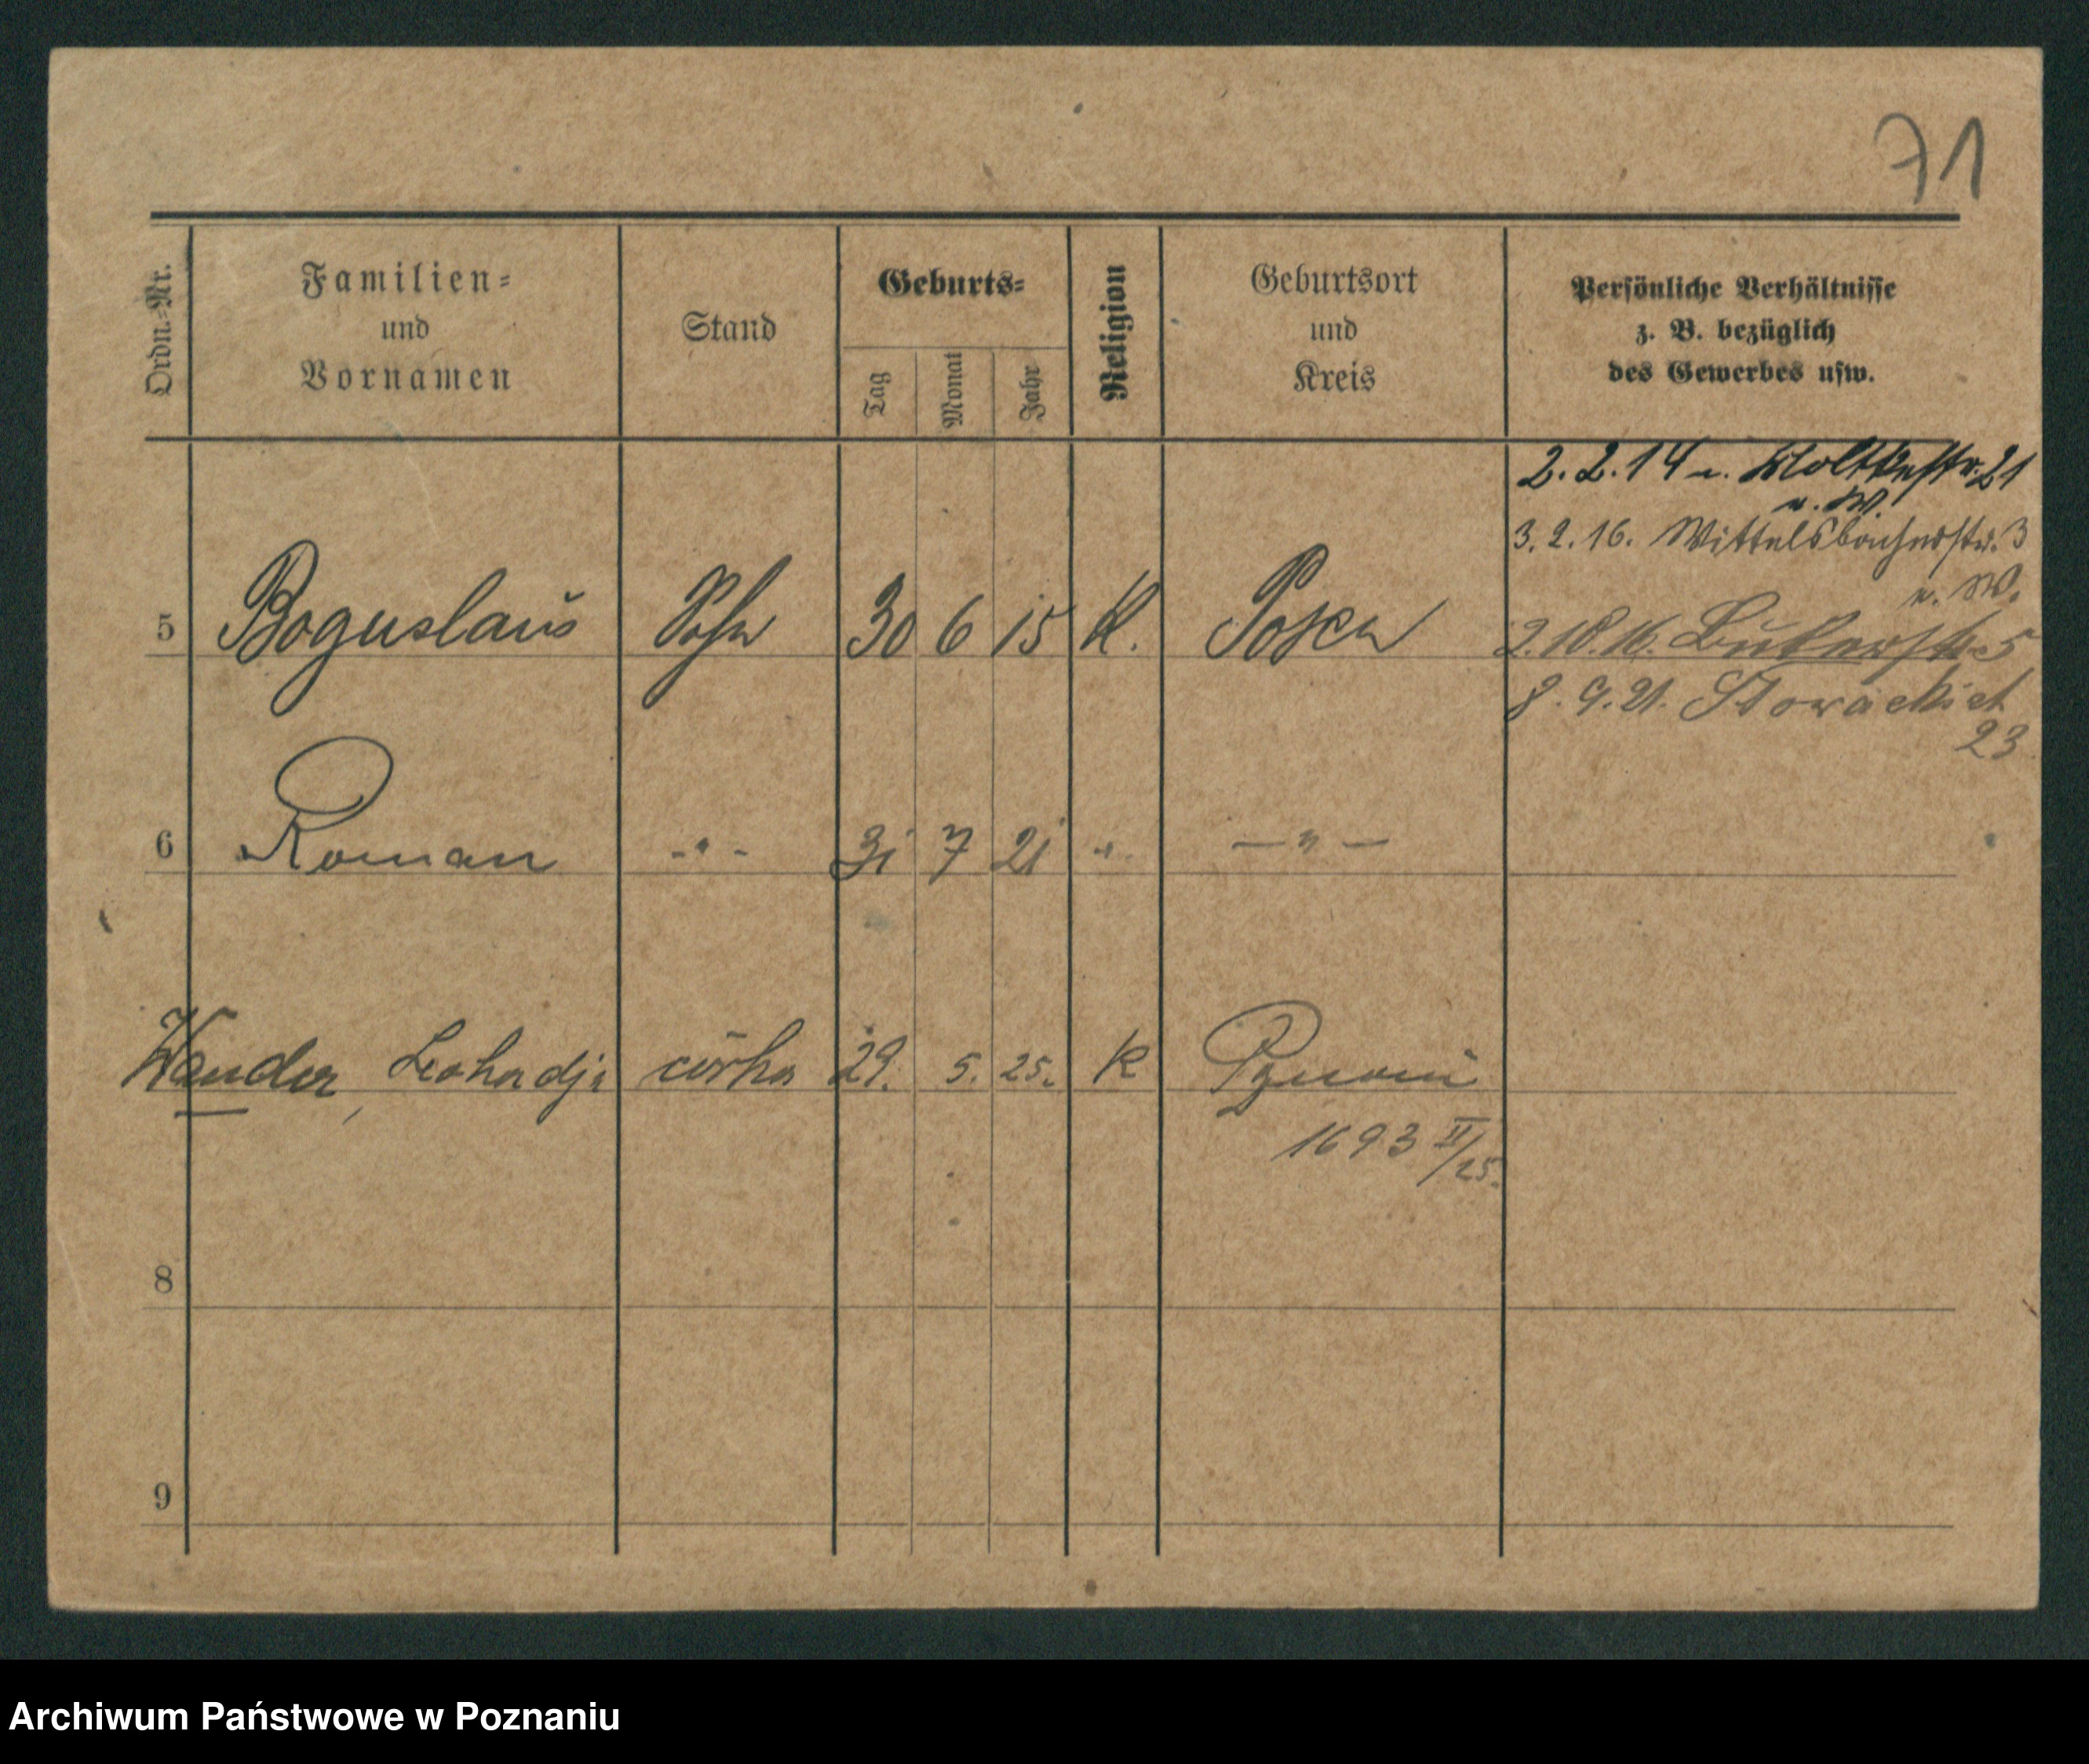 71
Ordn.-Nr. Familien- und Vornamen Stand Geburts- Tag Monat Jahr Religion Geburtsort und Kreis Persönliche Verhältnisse z. B. bezüglich des Gewerbes usw.
2.2.14 n. Moltkestr. 21
n. W.
3.2.16. Wittelsbacherstr. 3
n. W.
5 Boguslaus Sohn 30 6 15 K. Posen 2.10.16. Bukerstr. 5
8.9.21. Słowackiet
23
6 Roman -"- 31 7 21 " —"—
Wanda, Leokadja córka 29. 5. 25. K Poznań
1693 II/25.
8
9
Archiwum Państwowe w Poznaniu